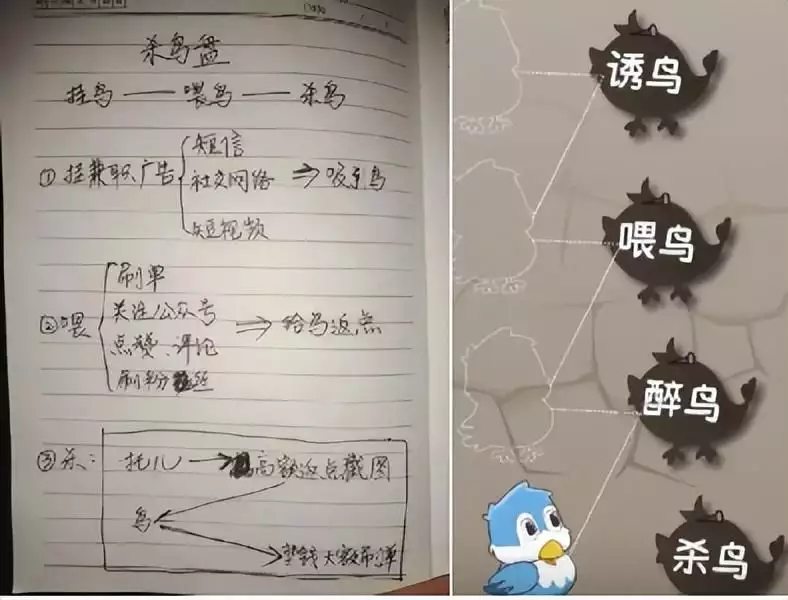 杀鸟盘
挂鸟 — 喂鸟 — 杀鸟
①挂兼职广告
短信
社交网络
短视频
⇒ 吸引鸟
②喂
刷单
关注公众号
点赞、评论
刷粉丝
⇒ 给鸟返点
③杀:
托儿 → 高额返点截图
鸟
垫钱大额刷单
诱鸟
喂鸟
醉鸟
杀鸟